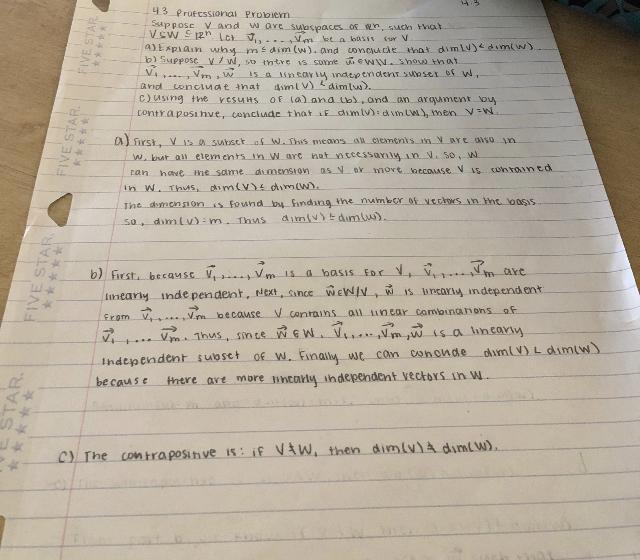 4.3
4.3 Professional Problem
Suppose V and W are subspaces of ℝⁿ, such that
V⊆W⊆ℝⁿ Let v⃗₁,...,v⃗ₘ be a basis for V
a) Explain why m≤dim(W). and conclude that dim(V)≤dim(W)
b) Suppose V≠W, so there is some w⃗∈W\V. Show that
v⃗₁,...,v⃗ₘ, w⃗ is a linearly independent subset of W,
and conclude that dim(V)<dim(W).
c) Using the results of (a) and (b), and an argument by
contrapositive, conclude that if dim(V)=dim(W), then V=W.
a) First, V is a subset of W. This means all elements in V are also in
W, but all elements in W are not necessarily in V. So, W
can have the same dimension as V or more because V is contained
in W. Thus, dim(V)≤dim(W).
The dimension is found by finding the number of vectors in the basis
so, dim(V)=m. Thus dim(V)≤dim(W).
b) First, because v⃗₁,...,v⃗ₘ is a basis for V, v⃗₁,...,v⃗ₘ are
linearly independent. Next, since w⃗∈W/V, w⃗ is linearly independent
from v⃗₁,...,v⃗ₘ because V contains all linear combinations of
v⃗₁,... v⃗ₘ. Thus, since w⃗∈W. v⃗₁,...,v⃗ₘ,w⃗ is a linearly
independent subset of W. Finally we can conclude dim(V)<dim(W)
because there are more linearly independent vectors in W.
c) The contrapositive is: if V≠W, then dim(V)≠dim(W).
FIVE STAR.
FIVE STAR.
FIVE STAR.
VE STAR.